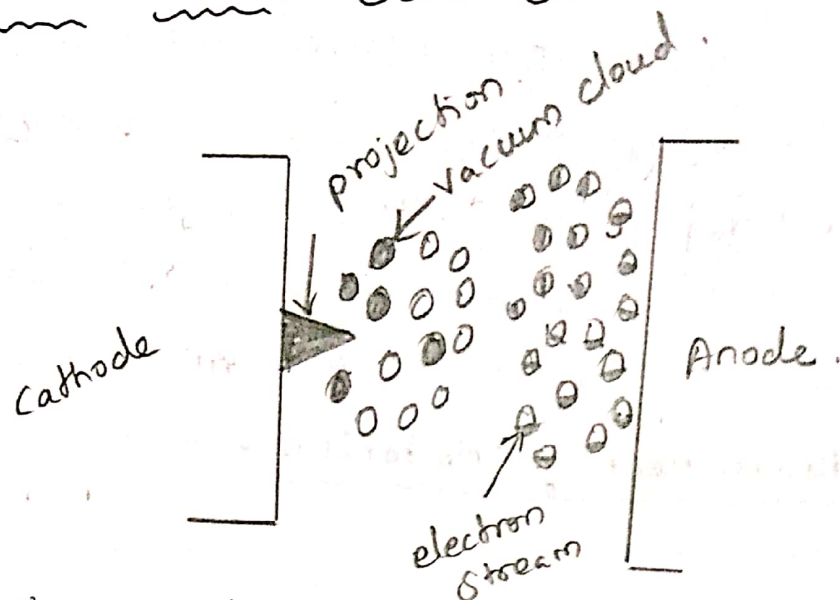 projection.
vacuum cloud.
Cathode
Anode.
electron
stream